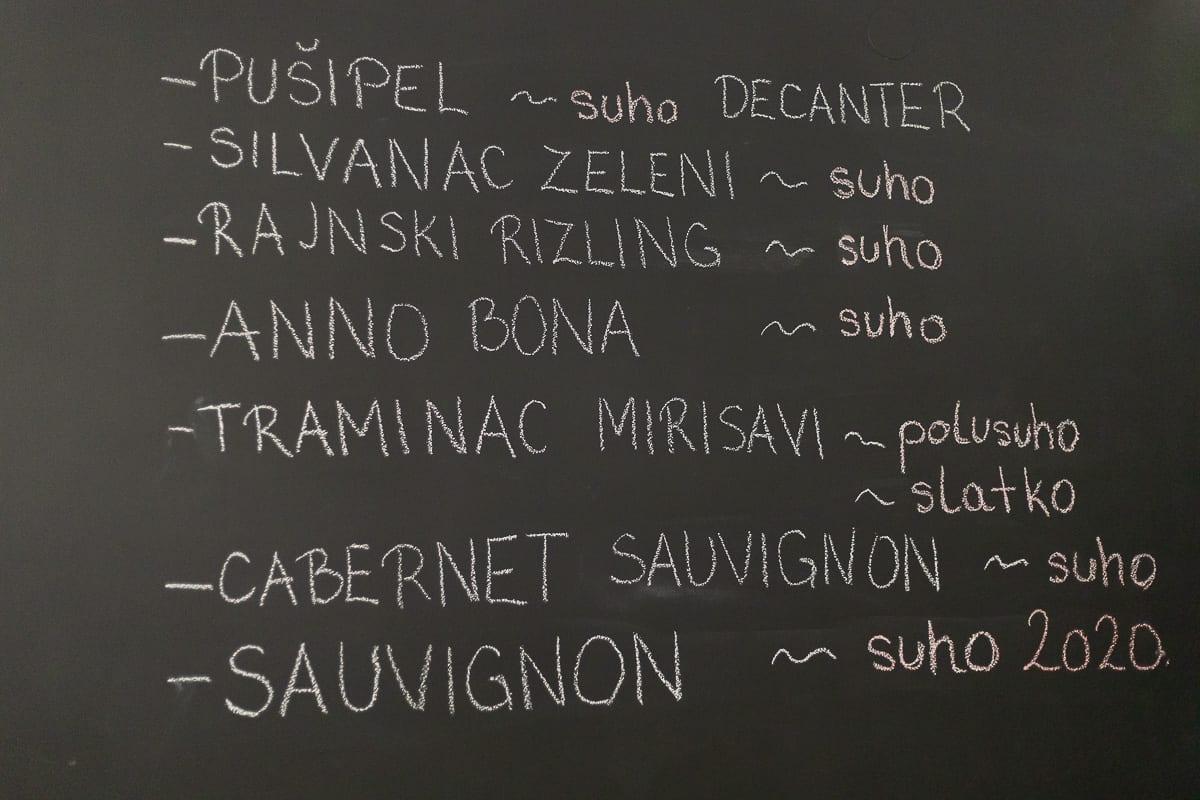 - PUŠIPEL ~ suho DECANTER
- SILVANAC ZELENI ~ suho
- RAJNSKI RIZLING ~ suho
- ANNO BONA ~ suho
- TRAMINAC MIRISAVI ~ polusuho
~ slatko
- CABERNET SAUVIGNON ~ suho
- SAUVIGNON ~ suho 2020.